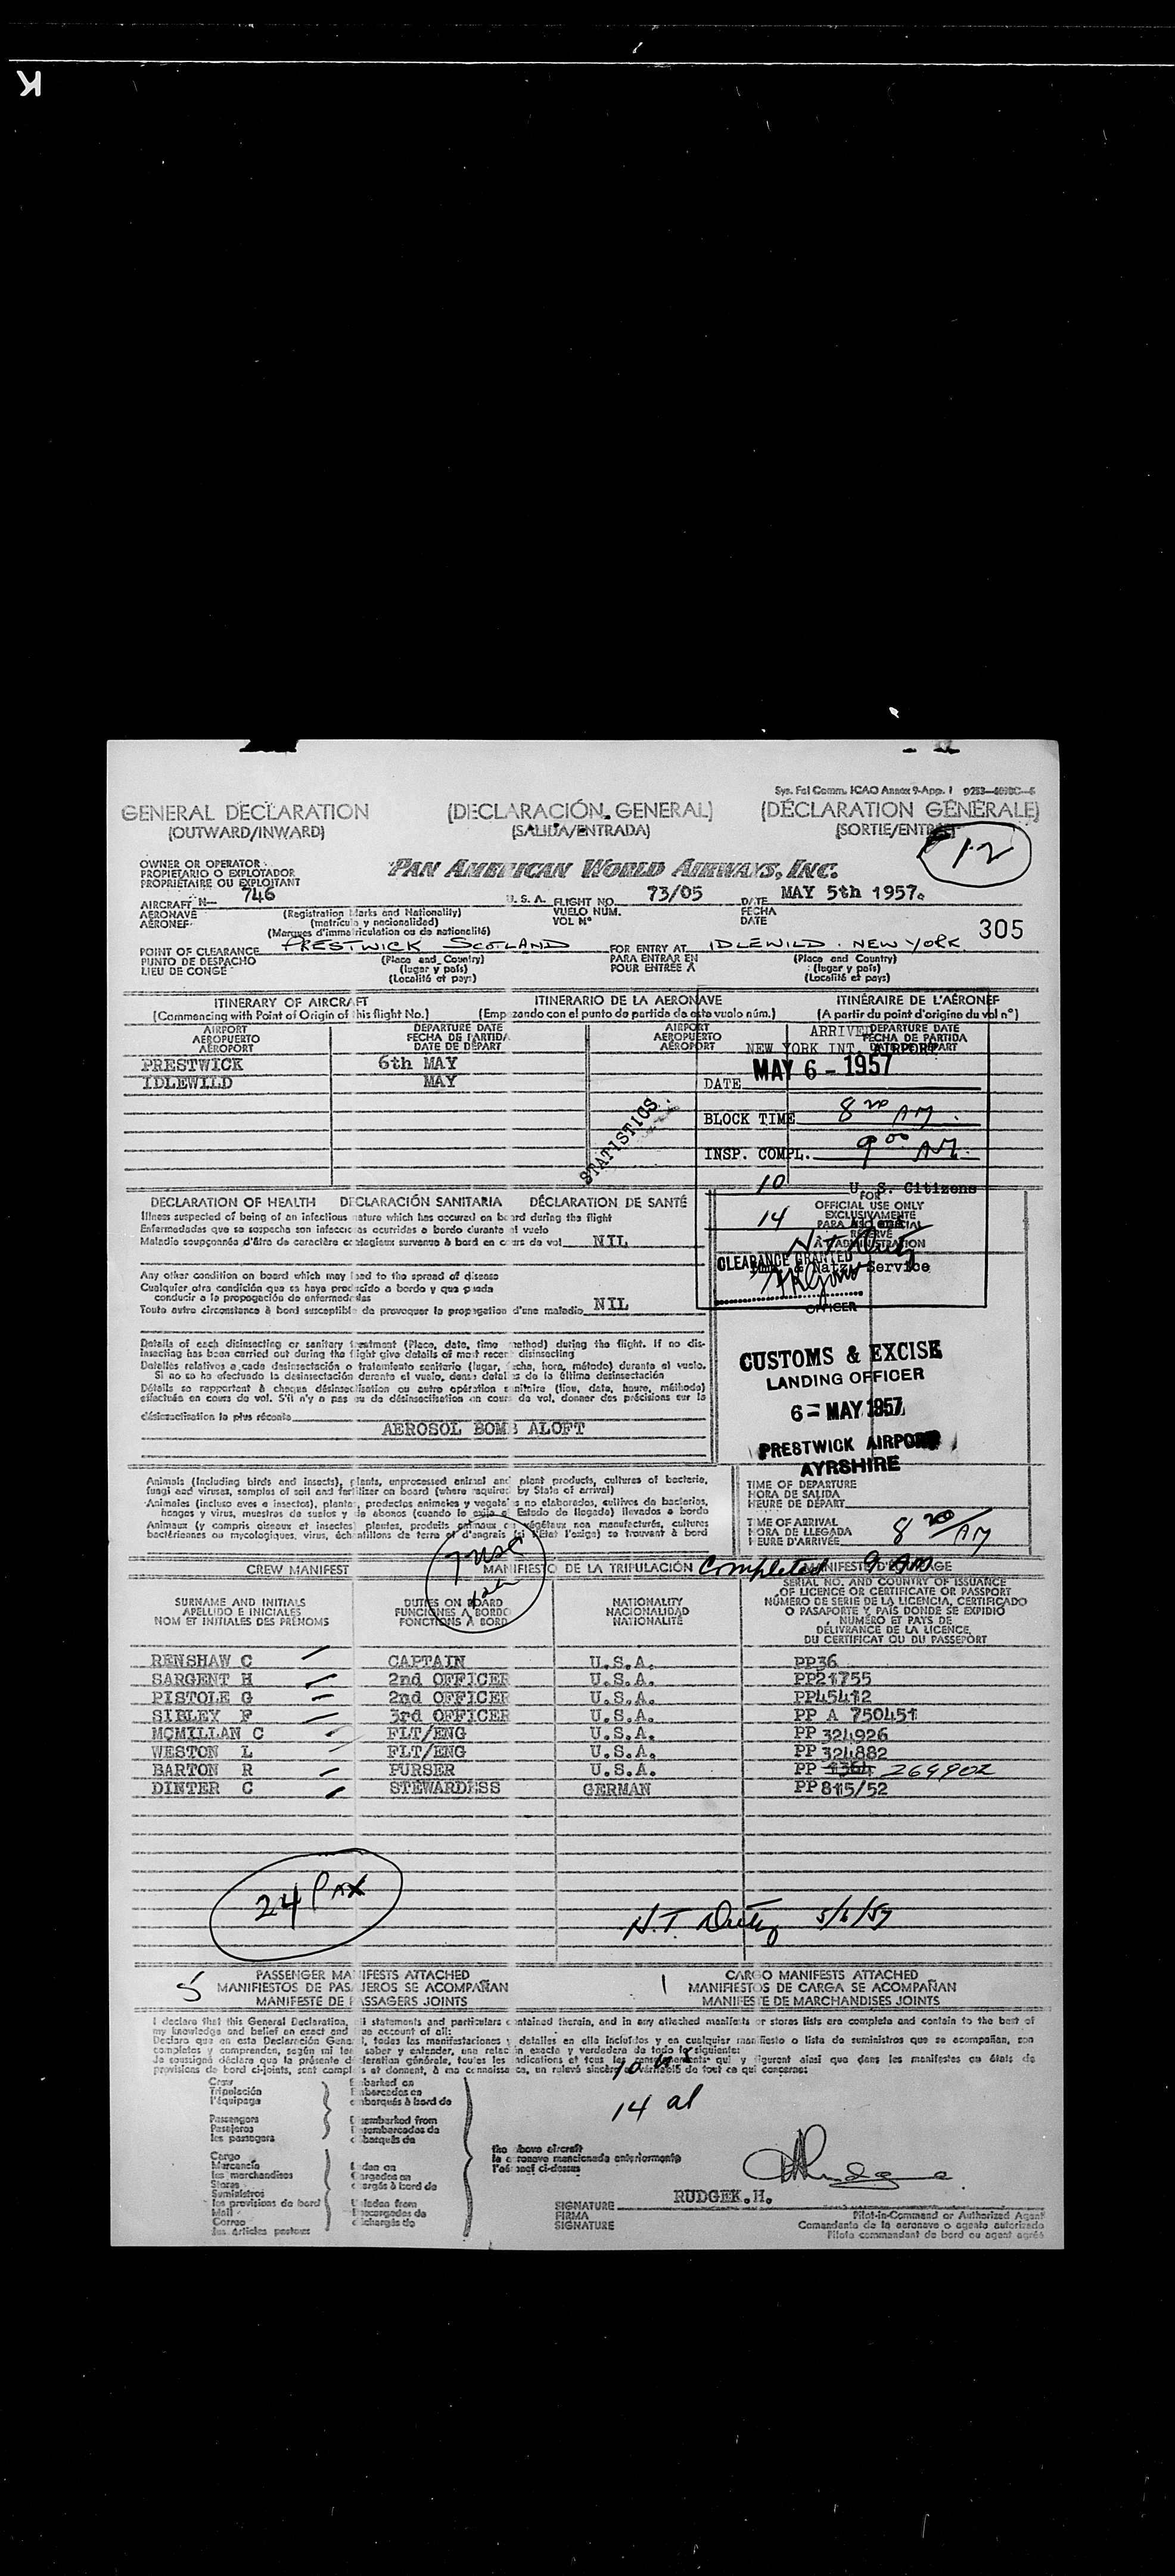 K
Sys. Fal Comm. ICAO Annex 9-App. I
GENERAL DECLARATION (DECLARACIÓN GENERAL) (DÉCLARATION GÉNÉRALE)
(OUTWARD/INWARD) (SALIDA/ENTRADA) (SORTIE/ENTRÉE)
12
OWNER OR OPERATOR
PROPIETARIO O EXPLOTADOR
PROPRIÉTAIRE OU EXPLOITANT
PAN AMERICAN WORLD AIRWAYS, INC.
AIRCRAFT N— 746 U. S. A. FLIGHT NO. 73/05 DATE MAY 5th 1957.
AERONAVE (Registration Marks and Nationality) VUELO NUM. FECHA
AÉRONEF (matrícula y nacionalidad) VOL Nº DATE
(Marques d'immatriculation ou de nationalité) 305
POINT OF CLEARANCE PRESTWICK SCOTLAND FOR ENTRY AT IDLEWILD. NEW YORK.
PUNTO DE DESPACHO (Place and Country) PARA ENTRAR EN (Place and Country)
LIEU DE CONGÉ (lugar y país) POUR ENTRÉE À (lugar y país)
(Localité et pays) (Localité et pays)
ITINERARY OF AIRCRAFT ITINERARIO DE LA AERONAVE ITINÉRAIRE DE L'AÉRONEF
(Commencing with Point of Origin of this flight No.) (Empezando con el punto de partida de este vuelo núm.) (A partir du point d'origine du vol nº)
AIRPORT DEPARTURE DATE AIRPORT DEPARTURE DATE
AEROPUERTO FECHA DE PARTIDA AEROPUERTO FECHA DE PARTIDA
AÉROPORT DATE DE DÉPART AÉROPORT DATE DE DÉPART
ARRIVED
NEW YORK INT. AIRPORT
PRESTWICK 6th MAY
IDLEWILD MAY
DATE MAY 6 - 1957
STATISTICS
BLOCK TIME 8 20 AM.
INSP. COMPL. 9 00 AM.
10 U. S. Citizens
14
N.T. Duty
& Natz. Service
FOR
OFFICIAL USE ONLY
EXCLUSIVAMENTE
PARA USO OFICIAL
RÉSERVÉ
À L'ADMINISTRATION
CLEARANCE GRANTED
OFFICER
DECLARATION OF HEALTH DECLARACIÓN SANITARIA DÉCLARATION DE SANTÉ
Illness suspected of being of an infectious nature which has occured on board during the flight
Enfermedades que se sospecha son infecciosas ocurridas a bordo durante el vuelo
Maladie soupçonnée d'être de caractère contagieux survenue à bord en cours de vol NIL
Any other condition on board which may lead to the spread of disease
Cualquier otra condición que se haya producido a bordo y que pueda
conducir a la propagación de enfermedades
Toute autre circonstance à bord susceptible de provoquer la propagation d'une maladie NIL
Details of each disinsecting or sanitary treatment (Place, date, time method) during the flight. If no dis-
insecting has been carried out during the flight give details of most recent disinsecting
Detalles relativos a cada desinsectación o tratamiento sanitario (lugar, fecha, hora, método) durante el vuelo.
Si no se ha efectuado la desinsectación durante el vuelo, dense detalles de la última desinsectación
Détails se rapportant à chaque désinsectisation ou autre opération sanitaire (lieu, date, heure, méthode)
effectuée en cours de vol. S'il n'y a pas eu de désinsectisation en cours de vol, donner des précisions sur la
désinsectisation la plus récente
AEROSOL BOMB ALOFT
CUSTOMS & EXCISE
LANDING OFFICER
6 - MAY 1957
PRESTWICK AIRPORT
AYRSHIRE
Animals (including birds and insects), plants, unprocessed animal and plant products, cultures of bacteria,
fungi and viruses, samples of soil and fertilizer on board (where required by State of arrival)
Animales (incluso aves e insectos), plantas, productos animales y vegetales no elaborados, cultivos de bacterias,
hongos y virus, muestras de suelos y de abonos (cuando lo exija el Estado de llegada) llevados a bordo
Animaux (y compris oiseaux et insectes) plantes, produits animaux ou végétaux non manufacturés, cultures
bactériennes ou mycologiques, virus, échantillons de terre et d'engrais (si l'état l'exige) se trouvant à bord
TIME OF DEPARTURE
HORA DE SALIDA
HEURE DE DÉPART
TIME OF ARRIVAL
HORA DE LLEGADA
HEURE D'ARRIVÉE 8 20/AM
7 usc
1 al
CREW MANIFEST MANIFIESTO DE LA TRIPULACIÓN MANIFESTE D'ÉQUIPAGE
Completed 9 AM
SURNAME AND INITIALS DUTIES ON BOARD NATIONALITY SERIAL NO. AND COUNTRY OF ISSUANCE
APELLIDO E INICIALES FUNCIONES A BORDO NACIONALIDAD OF LICENCE OR CERTIFICATE OR PASSPORT
NOM ET INITIALES DES PRÉNOMS FONCTIONS À BORD NATIONALITÉ NÚMERO DE SERIE DE LA LICENCIA, CERTIFICADO
O PASAPORTE Y PAÍS DONDE SE EXPIDIÓ
NUMÉRO ET PAYS DE
DÉLIVRANCE DE LA LICENCE,
DU CERTIFICAT OU DU PASSEPORT
RENSHAW C CAPTAIN U.S.A. PP36
SARGENT H 2nd OFFICER U.S.A. PP21755
PISTOLE G 2nd OFFICER U.S.A. PP45412
SIBLEY F 3rd OFFICER U.S.A. PP A 750451
MCMILLAN C FLT/ENG U.S.A. PP 324926
WESTON L FLT/ENG U.S.A. PP 324882
BARTON R PURSER U.S.A. PP 264902
DINTER C STEWARDESS GERMAN PP 815/52
24 Pax
N.T. Duty 5/6/57
5 PASSENGER MANIFESTS ATTACHED 1 CARGO MANIFESTS ATTACHED
MANIFIESTOS DE PASAJEROS SE ACOMPAÑAN MANIFIESTOS DE CARGA SE ACOMPAÑAN
MANIFESTE DE PASSAGERS JOINTS MANIFESTE DE MARCHANDISES JOINTS
I declare that this General Declaration, all statements and particulars contained therein, and in any attached manifests or stores lists are complete and contain to the best of
my knowledge and belief an exact and true account of all:
Declaro que en esta Declaración General, todas las manifestaciones y detalles en ella incluídos y en cualquier manifiesto o lista de suministros que se acompañan, son
completos y comprenden, según mi leal saber y entender, una relación exacta y verdadera de todo lo siguiente:
Je soussigné déclare que la présente déclaration générale, toutes les indications et tous les renseignements qui y figurent ainsi que dans les manifestes ou états de
provisions de bord ci-joints, sont complets et donnent, à ma connaissance, un relevé sincère et véritable de tout ce qui concerne:
10 us
14 al
Crew Embarked on
Tripulación Embarcados en
l'équipage embarqués à bord de
Passengers Disembarked from
Pasajeros Desembarcados de
les passagers débarqués de
Cargo
Mercancía Laden on
les marchandises Cargados en
Stores chargés à bord de
Suministros
les provisions de bord Unladen from
Mail Descargados de
Correo déchargés de
les articles postaux
the above aircraft
la aeronave mencionada anteriormente
l'aéronef ci-dessus
SIGNATURE RUDGEK.H.
FIRMA
SIGNATURE
Pilot-in-Command or Authorized Agent
Comandante de la aeronave o agente autorizado
Pilote commandant de bord ou agent agréé